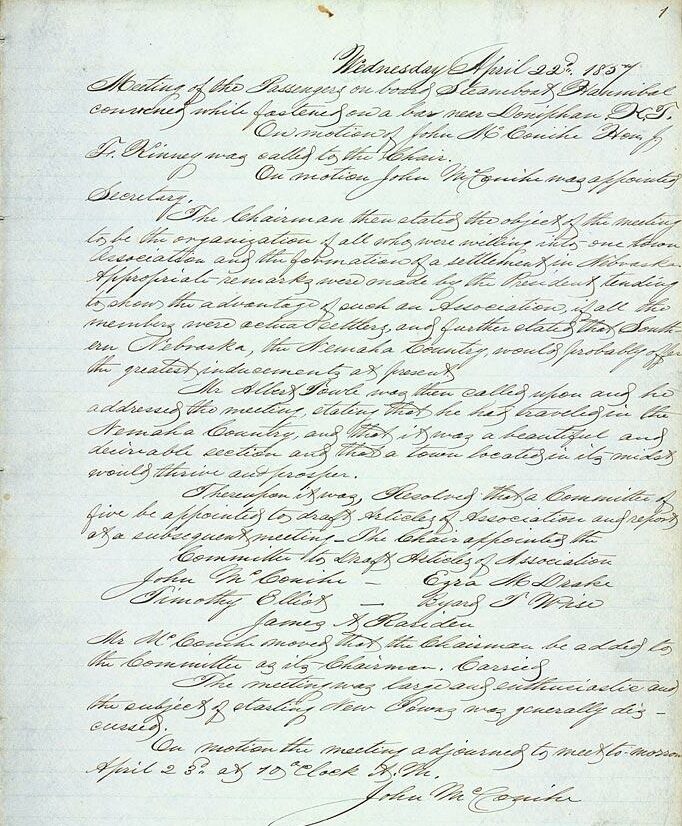 1
Wednesday April 22d. 1857
Meeting of the Passengers on board Steamboat Hannibal
convened while fastened on a bar near Doniphan, K.T.
On motion of John McConihe Hon. J
F. Kinney was called to the Chair.
On motion John McConihe was appointed
Secretary.
The Chairman then stated the object of the meeting
to be the organization of all who were willing into one town
Association and the formation of a settlement in Nebraska
Appropriate remarks were made by the President tending
to show the advantage of such an Association, if all the
members were actual settlers, and further stated that South-
ern Nebraska, the Nemaha Country, would probably offer
the greatest inducements at present
Mr Albert Towle was then called upon and he
addressed the meeting, stating that he had traveled in the
Nemaha Country, and that it was a beautiful and
desirable section and that a town located in its midst
would thrive and prosper.
Thereupon it was Resolved that a Committee of
five be appointed to draft Articles of Association and report
at a subsequent meeting - The Chair appointed the
Committee to Draft Articles of Association
John McConihe - Ezra M Drake
Timothy Elliot - Byard T Wise
James A
Mr McConihe moved that the Chairman be added to
the Committee as its Chairman. Carried
The meeting was large and enthusiastic and
the subject of starting New Towns was generally dis-
cussed.
On motion the meeting adjourned to meet to-morrow
April 23d at 10 o'Clock A.M.
John McConihe